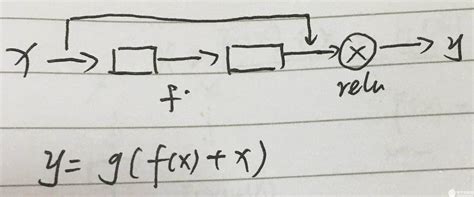 x y
f.
relu
y = g(f(x) + x)